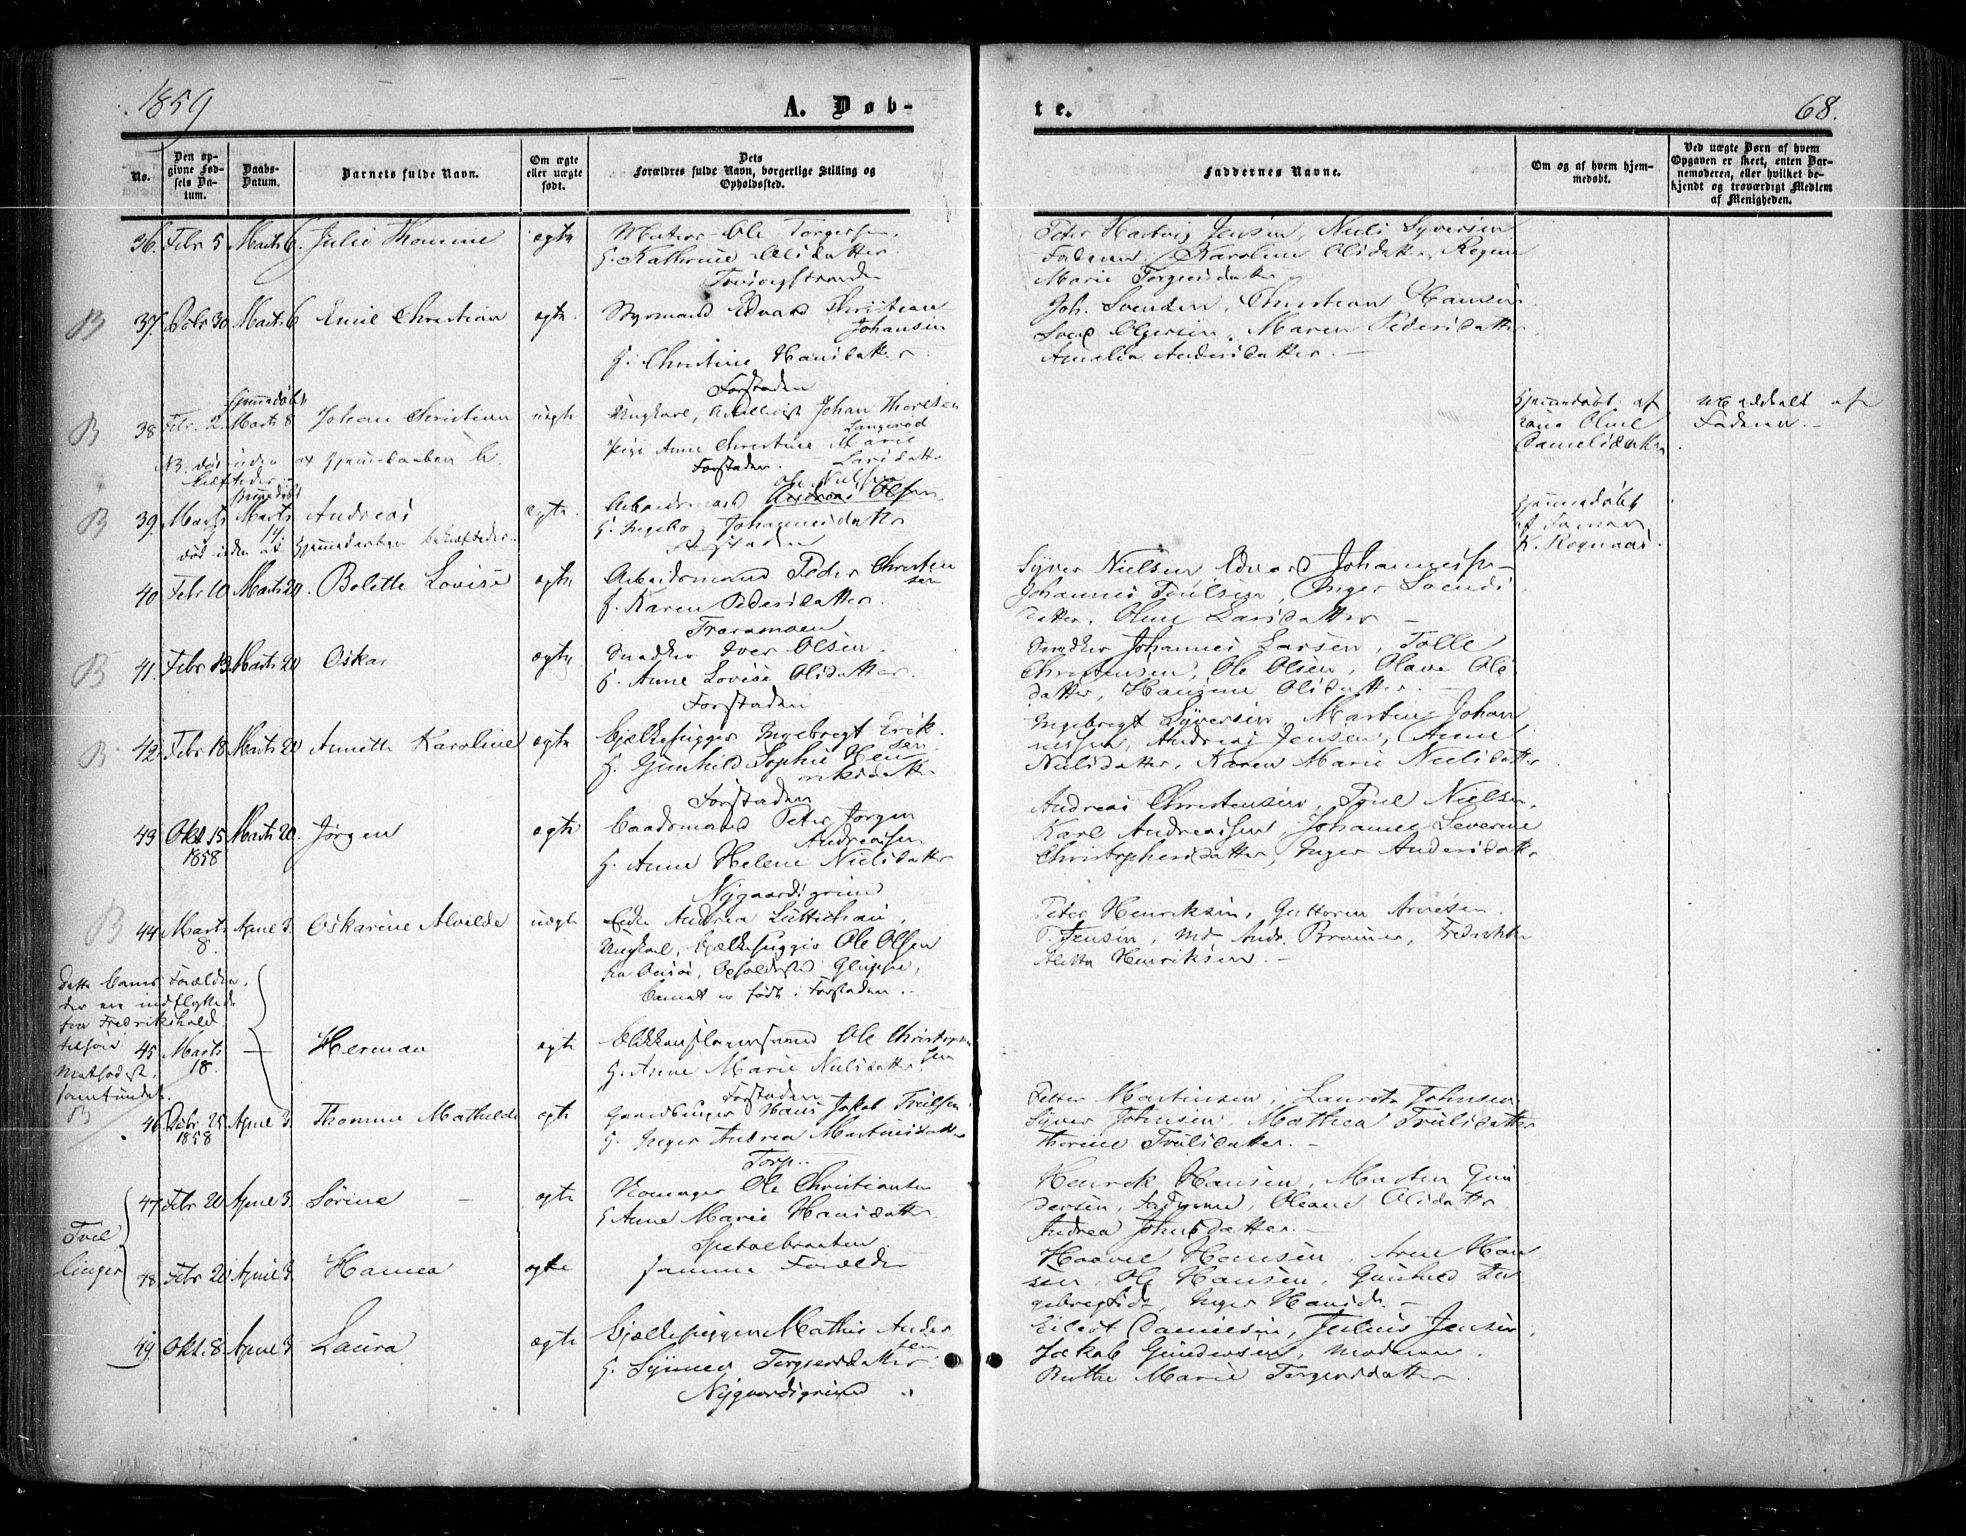 1859
A. Døb-
te.
68.
No.
Den op-
givne Fød-
sels Da-
tum.
Daabs-
Datum.
Barnets fulde Navn.
Om ægte
eller uægte
født.
Dets
Forældres fulde Navn, borgerlige Stilling og
Opholdssted.
Faddernes Navne.
Om og af hvem hjem-
medøbt.
Ved uægte Børn af hvem
Opgaven er skeet, enten Bar-
nemoderen, eller hvilket be-
kjendt og troværdigt Medlem
af Menigheden.
36. Febr 5 Marts 6. Julie Thomine ægte Ole Torgersen,
G. Kathrine Olsdatter
Peter Hartvig Jensen, Niels Syversen
Faderen, Karoline Olsdatter, Regine
Marie Torgersdatter
B 37. 30 Marts 6 Emil Christian ægte. Styrmand Edvard Christian
Johansen
G. Christine Hansdatter
Forstaden
Joh. Svendsen, Christian Hansen
Svend Olgersen, Maren Pedersdatter
Amalia Andersdatter. —
B 38 Febr. 2. Marts 8 Johan Christian uægte Ungkarl, Johan Thoresen
Langerød
Pige Anne Christine Marie
Larsdatter
Forstaden.
Hjemmedøbt af
Oline
Danielsdatter
Meddelt af
Faderen. —
B 39. Marts Marts 14 Andreas ægte. Arbeidsmand Andreas Olsen
Ole Nielsen
G. Ingebor Johannesdatter
Forstaden
død inden at Hjemmedaaben bekræftedes.
Hjemmedøbt
af
K. Rognaas.
40 Febr 10 Marts 20. Bolette Lovise ægte Arbeidsmand Peder Christen
sen
G. Karen Pedersdatter.
Traramoen
Syver Nielsen Edvard Johannessen
Johannes Poulsen, Inger Svends
datter, Oline Larsdatter —
B 41. Febr 13. Marts 20 Oskar ægte Snedker Iver Olsen.
G. Anne Lovise Olsdatter.
Forstaden
Snedker Johannes Larsen, Tolle
Christensen, Ole Olsen, Olave Ols
datter, Hansine Olsdatter. —
B 42. Febr 18 Marts 20 Annette Karoline ægte Bjelkehugger Ingebregt Erik-
sen
G. Gunhild Sophie Hen
riksdatter
Forstaden
Ingebregt Syversen, Martin Johan
nessen, Andreas Jensen, Anne
Nielsdatter, Karen Marie Nielsdatter
43 Okt 15 1858 Marts 20. Jørgen ægte Baadsmand Peter Jørgen
Andreassen
G. Anne Helene Nielsdatter
Nygaardsgrund
Andreas Christensen, Poul Nielsen,
Karl Andreassen, Johanne Severine
Christophersdatter, Inger Andersdatter
B 44. Marts 8. April 3. Oskarine Alvilde uægte Andrea Lüttichau,
Ungkarl, Bjelkehugger Ole Olsen
fra Onsø, Opholdssted Gluppe,
Barnet er født i Forstaden. —
Peter Henriksen, Guttorm Arnesen.
P. Jensen, Md Andr. Brauner, Fredrikke
Aletta Henriksen. —
Dette Barns Forældre,
der ere indflyttede
fra Fredrikshald
tilhøre
Methodist-
samfundet.
45 Marts 18. — Herman ægte Ole Christophersen
G. Anne Marie Nielsdatter
Forstaden
B 46. 25 1858 April 3. Thomine Mathilde ægte Gaardbruger Hans Jakob Trulsen
G. Inger Andrea Martinsdatter
Torp.
Petter Martinsen, Lauritz Johnsen
Syver Johnsen, Mathea Trulsdatter
Thorine Trulsdatter. —
Tvil
linger
47. Febr 20 April 3. Sørine ægte Ole Christiansen
G Anne Marie Hansdatter
Spetalbraaten
Henrik Hansen, Martin Gun
dersen, Faderen, Oleane Olsdatter
Andrea Johnsdatter. —
48. Febr 20 April 3. Hanna ægte samme Forældre
Haavel Hansen, Arne Han
sen, Ole Hansen, Gunhild In
gebregtsdt, Inger Hansdt. —
49. Okt. 8 April 3 Laura ægte Bjelkehugger Mathis Ander
sen
G. Synnev Torgersdatter
Nygaardsgrund
Eilert Danielsen, Julius Jensen,
Jakob Gundersen, Moderen,
Berthe Marie Torgersdatter.